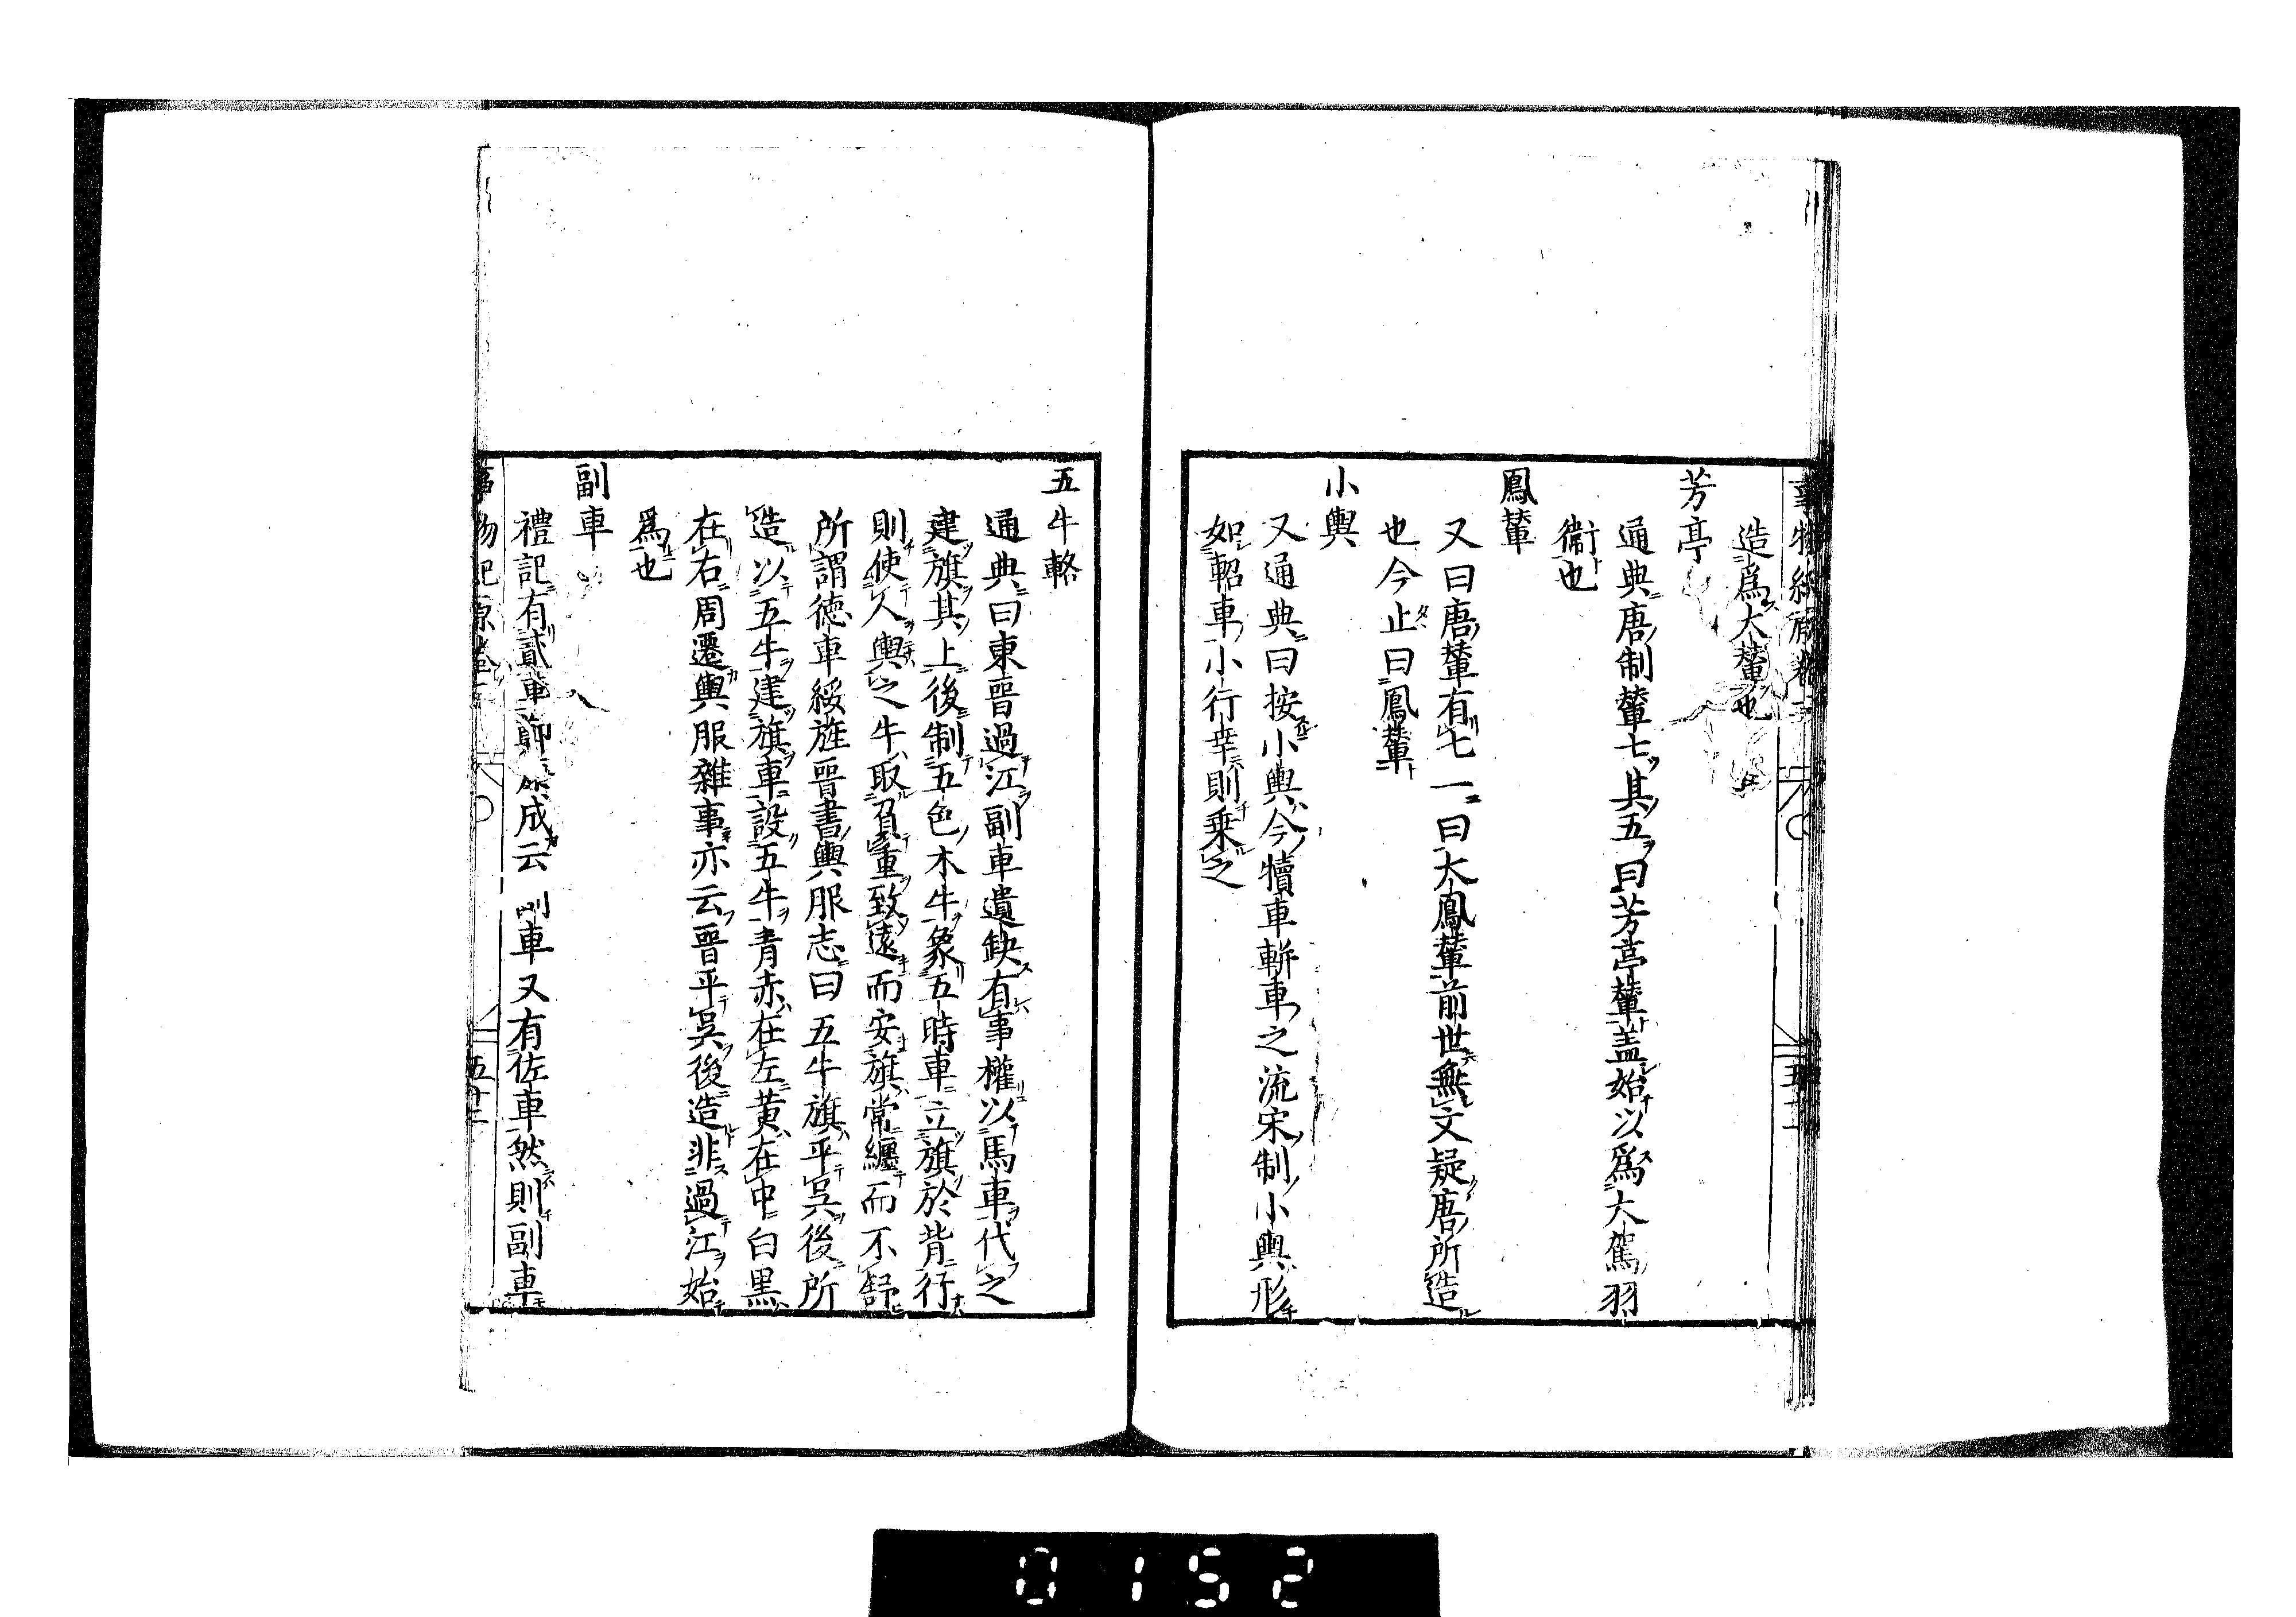 造爲大輦也
芳亭
通典唐制輦七其五曰芳亭輦盖始以爲大駕羽
衞也
鳳輦
又曰唐輦有七一曰大鳳輦前世無文疑唐所造
也今止曰鳳輦
小輿
又通典曰按小輿今犢車軿車之流宋制小輿形
如軺車小行幸則乗之
五牛輅
通典曰東晉過江副車遺缺有事權以馬車代之
建旗其上後制五色木牛象五時車立旗於背行
則使人輿之牛取負重致遠而安旗常纏而不舒
所謂德車綏旌晉書輿服志曰五牛旗平吳後所
造以五牛建旗車設五牛青赤在左黃在中白黑
在右周遷輿服雜事亦云晉平吳後造非過江始
爲也
副車
禮記有貳車 成云副車又有佐車然則副車
事物紀原卷
五十二
0152